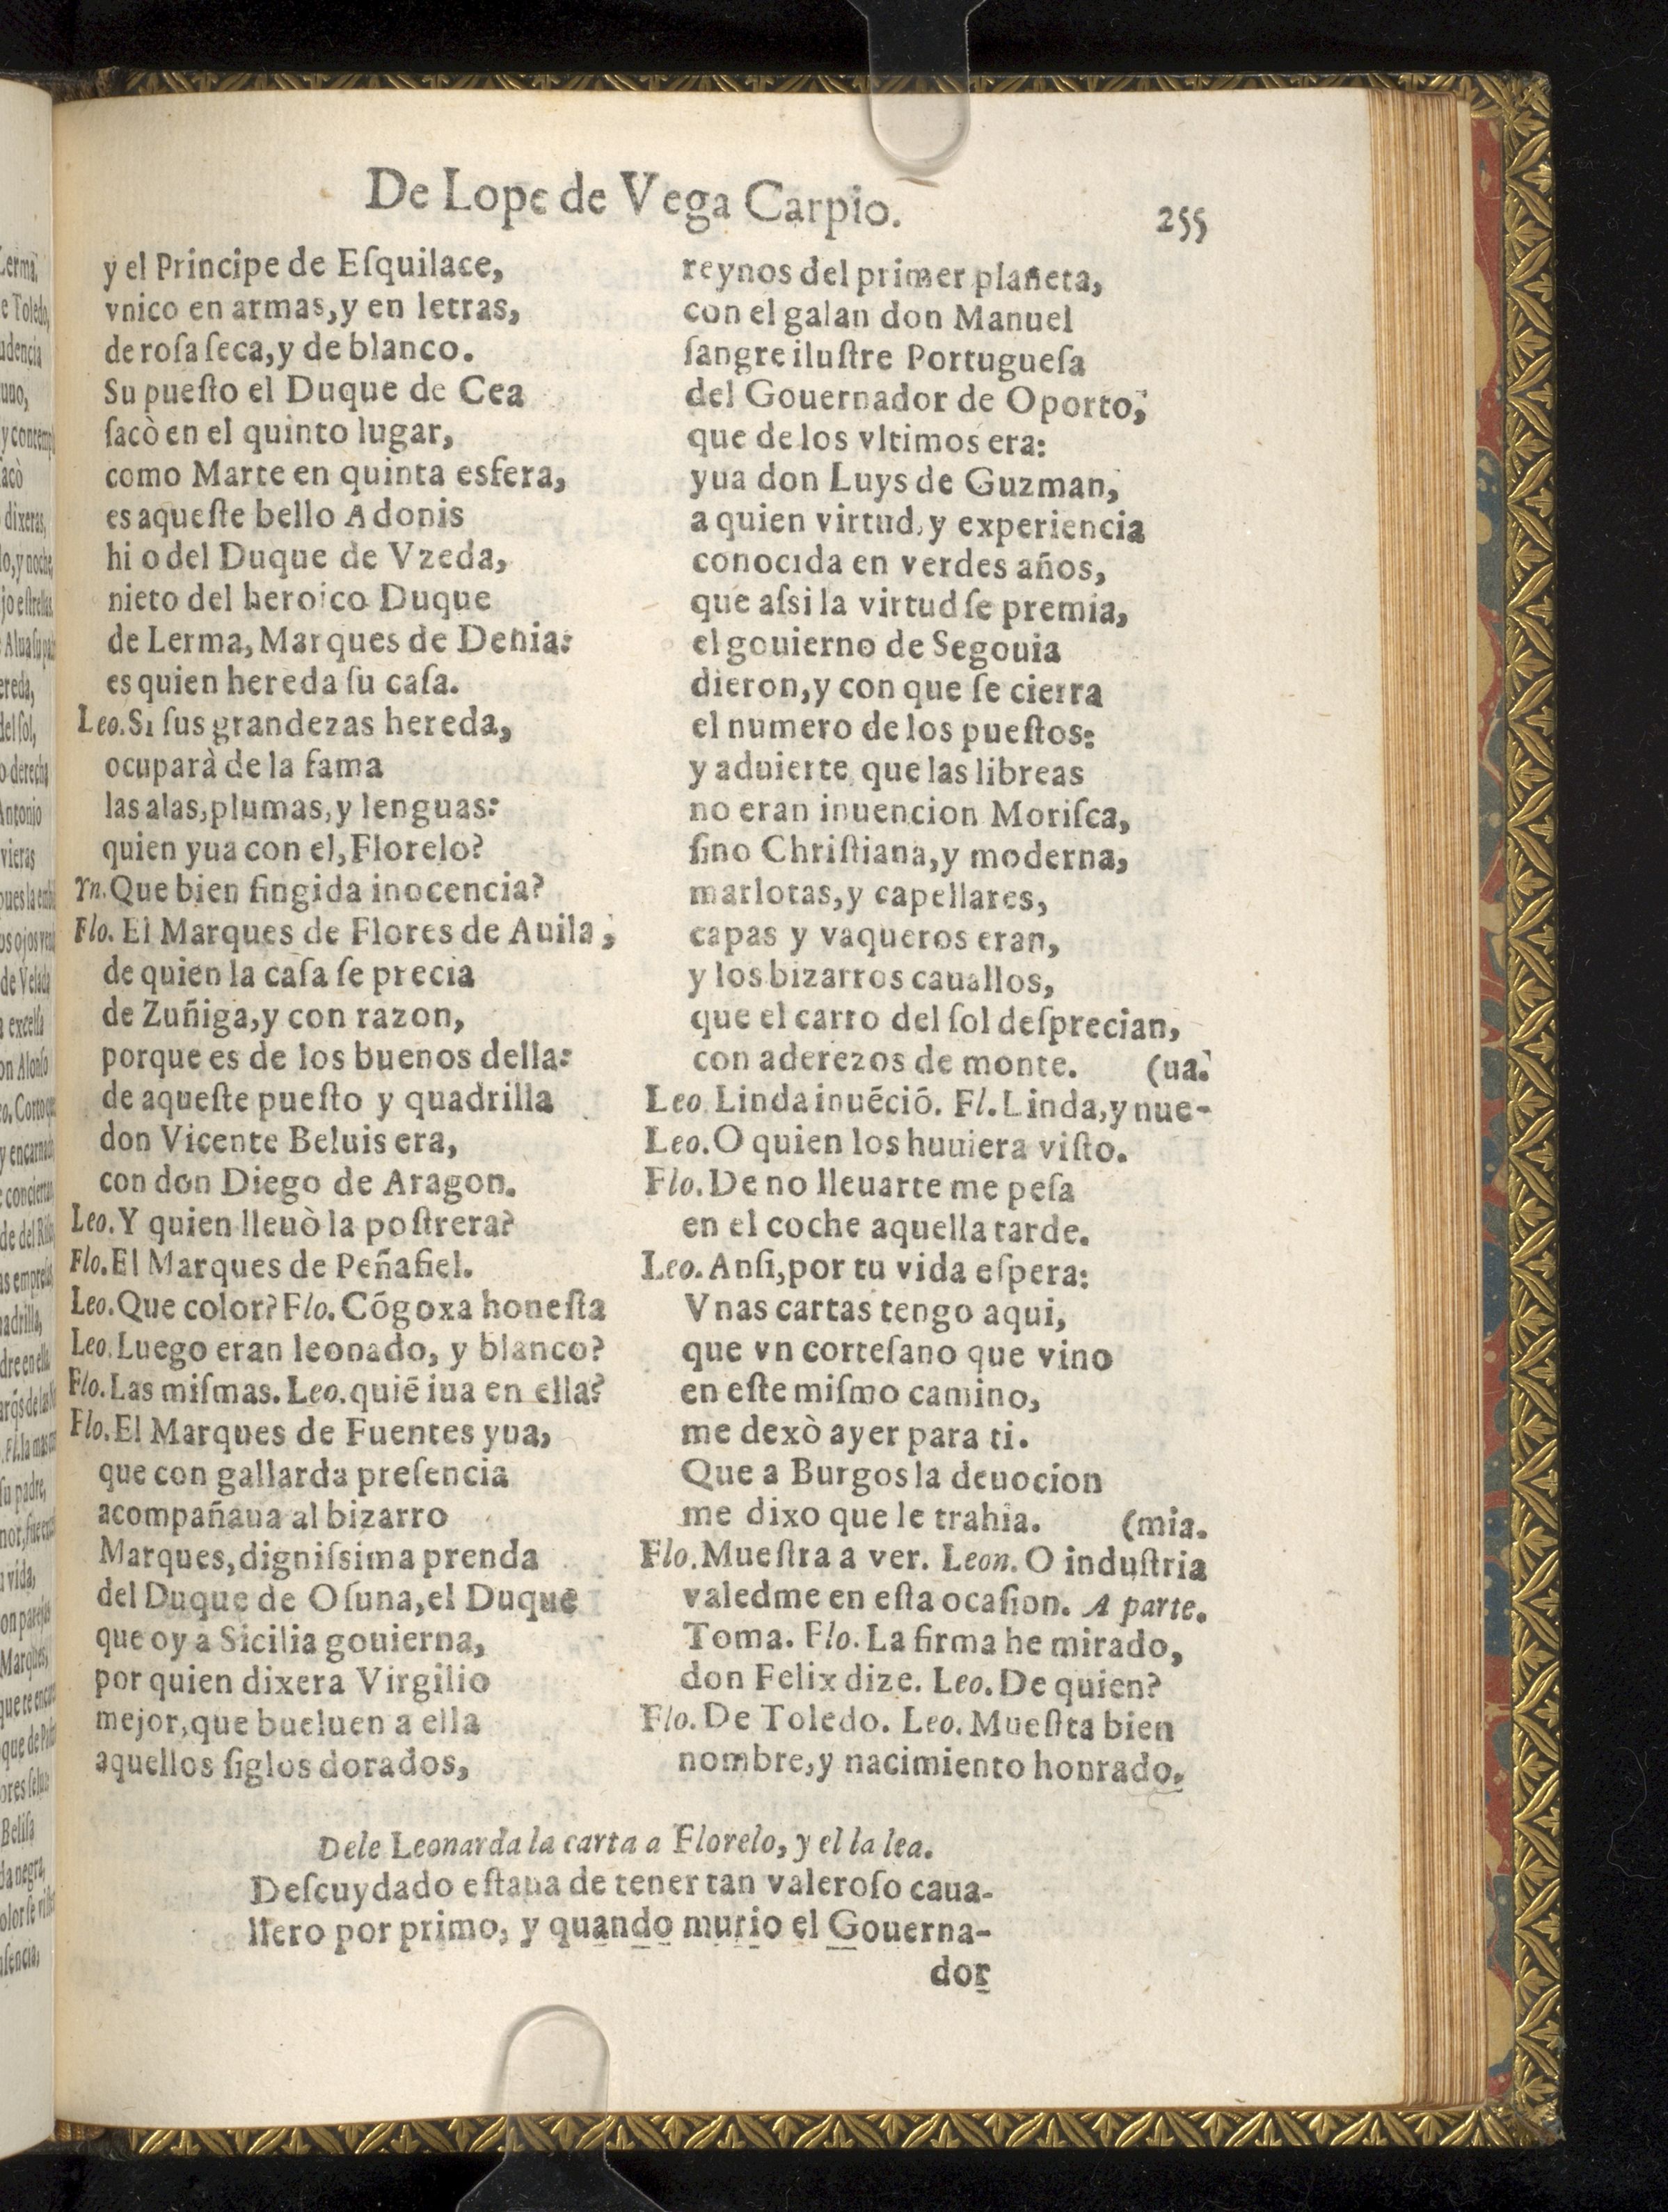 De Lope de Vega Carpio.
255
y el Principe de Eſquilace,
vnico en armas, y en letras,
de roſa ſeca, y de blanco.
Su pueſto el Duque de Cea
ſacò en el quinto lugar,
como Marte en quinta esfera,
es aqueſte bello Adonis
hi o del Duque de Vzeda,
nieto del heroico Duque
de Lerma, Marques de Denia:
es quien hereda ſu caſa.
Leo. Si ſus grandezas hereda,
ocuparà de la fama
las alas, plumas, y lenguas:
quien yua con el, Florelo?
Yn. Que bien fingida inocencia?
Flo. El Marques de Flores de Auila,
de quien la caſa ſe precia
de Zuñiga, y con razon,
porque es de los buenos della:
de aqueſte pueſto y quadrilla
don Vicente Beluis era,
con don Diego de Aragon.
Leo. Y quien lleuò la poſtrera?
Flo. El Marques de Peñafiel.
Leo. Que color? Flo. Cõgoxa honeſta
Leo. Luego eran leonado, y blanco?
Flo. Las miſmas. Leo. quiẽ iua en ella?
Flo. El Marques de Fuentes yua,
que con gallarda preſencia
acompañaua al bizarro
Marques, digniſsima prenda
del Duque de Oſuna, el Duque
que oy a Sicilia gouierna,
por quien dixera Virgilio
mejor, que bueluen a ella
aquellos ſiglos dorados,
reynos del primer planeta,
con el galan don Manuel
ſangre iluſtre Portugueſa
del Gouernador de Oporto,
que de los vltimos era:
yua don Luys de Guzman,
a quien virtud, y experiencia
conocida en verdes años,
que aſsi la virtud ſe premia,
el gouierno de Segouia
dieron, y con que ſe cierra
el numero de los pueſtos:
y aduierte que las libreas
no eran inuencion Moriſca,
ſino Chriſtiana, y moderna,
marlotas, y capellares,
capas y vaqueros eran,
y los bizarros cauallos,
que el carro del ſol deſprecian,
con aderezos de monte. (ua.
Leo. Linda inuẽciõ. Fl. Linda, y nue-
Leo. O quien los huuiera viſto.
Flo. De no lleuarte me peſa
en el coche aquella tarde.
Leo. Anſi, por tu vida eſpera:
Vnas cartas tengo aqui,
que vn corteſano que vino
en eſte miſmo camino,
me dexò ayer para ti.
Que a Burgos la deuocion
me dixo que le trahia. (mia.
Flo. Mueſtra a ver. Leon. O induſtria
valedme en eſta ocaſion. A parte.
Toma. Flo. La firma he mirado,
don Felix dize. Leo. De quien?
Flo. De Toledo. Leo. Mueſtra bien
nombre, y nacimiento honrado.
Dele Leonarda la carta a Florelo, y el la lea.
Deſcuydado eſtaua de tener tan valeroſo caua-
llero por primo, y quando murio el Gouerna-
dor